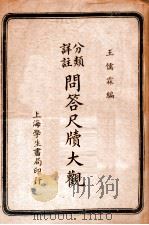 王儒霖編
分類
詳註
問答尺牘大觀
上海學生書局印行